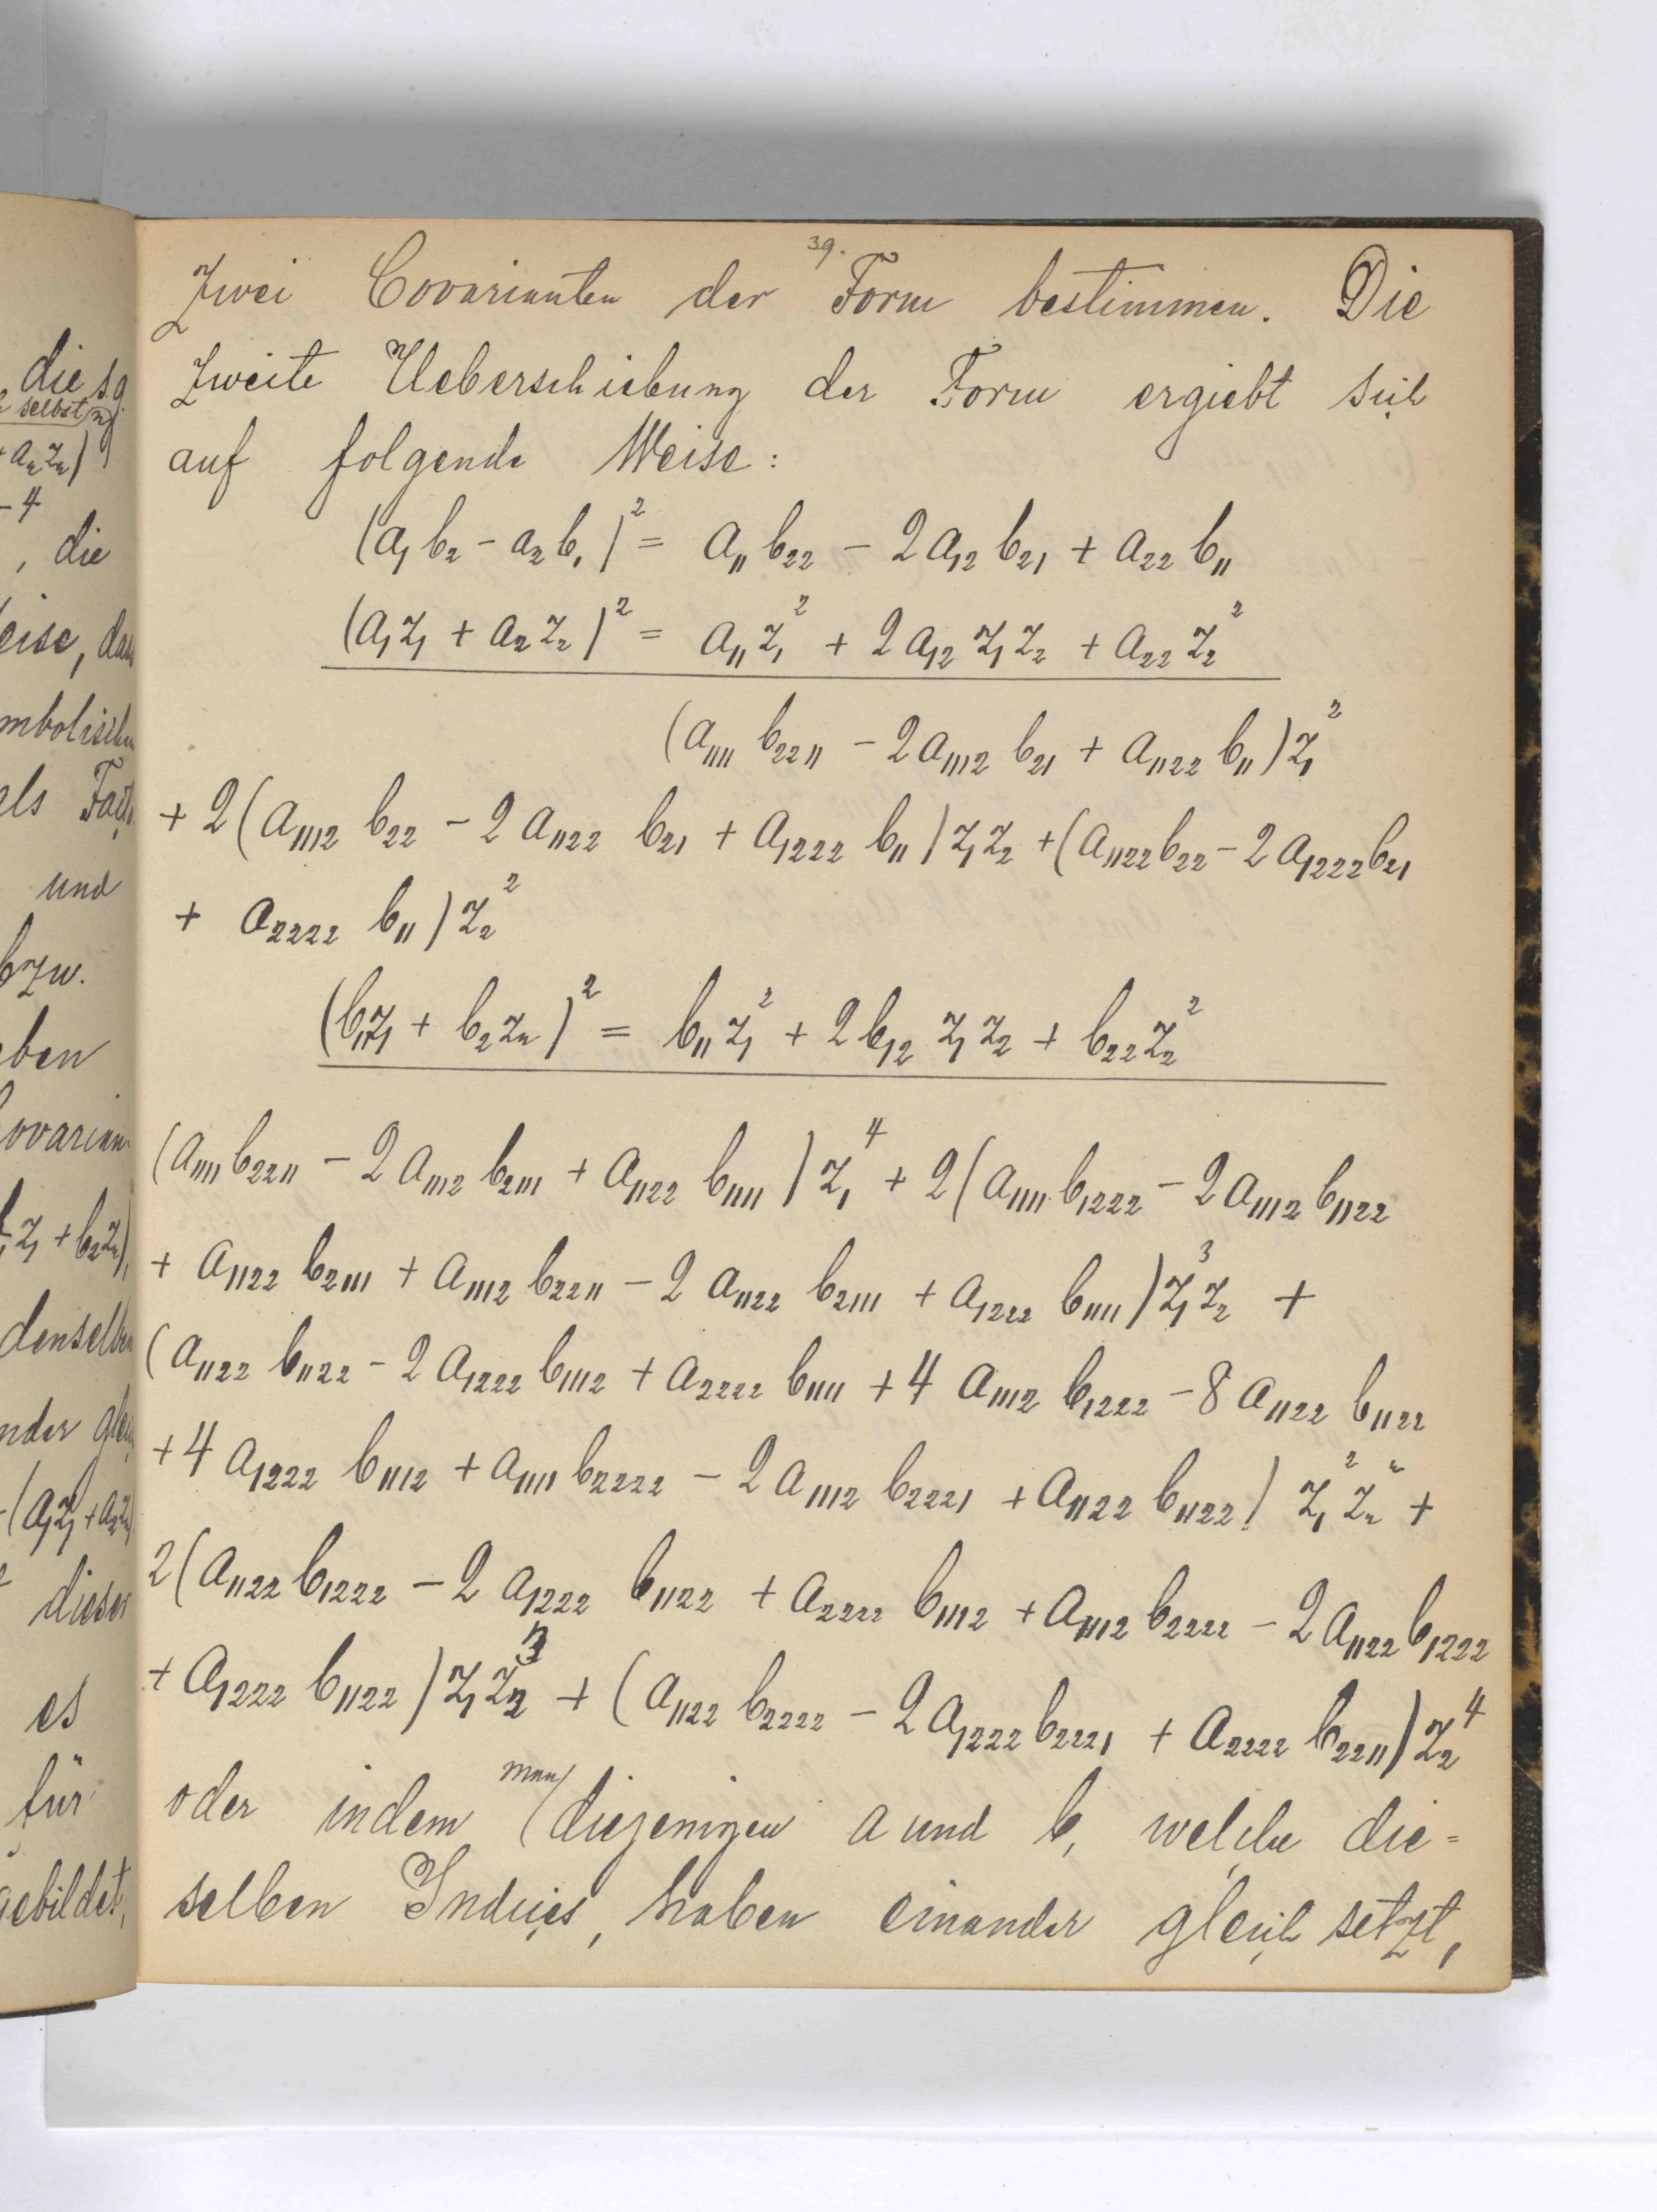 39.
Zwei Covarianten der Form bestimmen. Die
Zweite Ueberschiebung der Form ergiebt sich
auf folgende Weise:
(a₁b₂ - a₂b₁)² = a₁₁b₂₂ - 2a₁₂b₂₁ + a₂₂b₁₁
(a₁z₁ + a₂z₂)² = a₁₁z₁² + 2a₁₂z₁z₂ + a₂₂z₂²
(a₁₁₁₁b₂₂₁₁ - 2a₁₁₁₂b₂₁ + a₁₁₂₂b₁₁)z₁²
+ 2(a₁₁₁₂b₂₂ - 2a₁₁₂₂b₂₁ + a₁₂₂₂b₁₁)z₁z₂ + (a₁₁₂₂b₂₂ - 2a₁₂₂₂b₂₁
+ a₂₂₂₂b₁₁)z₂²
(b₁z₁ + b₂z₂)² = b₁₁z₁² + 2b₁₂z₁z₂ + b₂₂z₂²
(a₁₁₁₁b₂₂₁₁ - 2a₁₁₁₂b₂₁₁₁ + a₁₁₂₂b₁₁₁₁)z₁⁴ + 2(a₁₁₁₁b₁₂₂₂ - 2a₁₁₁₂b₁₁₂₂
+ a₁₁₂₂b₂₁₁₁ + a₁₁₁₂b₂₂₁₁ - 2a₁₁₂₂b₂₁₁₁ + a₁₂₂₂b₁₁₁₁)z₁³z₂ +
(a₁₁₂₂b₁₁₂₂ - 2a₁₂₂₂b₁₁₁₂ + a₂₂₂₂b₁₁₁₁ + 4a₁₁₁₂b₁₂₂₂ - 8a₁₁₂₂b₁₁₂₂
+ 4a₁₂₂₂b₁₁₁₂ + a₁₁₁₁b₂₂₂₂ - 2a₁₁₁₂b₂₂₂₁ + a₁₁₂₂b₁₁₂₂)z₁²z₂² +
2(a₁₁₂₂b₁₂₂₂ - 2a₁₂₂₂b₁₁₂₂ + a₂₂₂₂b₁₁₁₂ + a₁₁₁₂b₂₂₂₂ - 2a₁₁₂₂b₁₂₂₂
+ a₁₂₂₂b₁₁₂₂)z₁z₂³ + (a₁₁₂₂b₂₂₂₂ - 2a₁₂₂₂b₂₂₂₁ + a₂₂₂₂b₂₂₁₁)z₂⁴
oder indem man diejenigen a und b, welche die=
selben Indices, haben einander gleich setzt,
die s.g.
selbst
+ a₂z₂)
- 4
, die
eise, dass
mbolischen
als
und
bzw.
eben
z₁ + b₂z₂),
denselben
nder
(a₁z₁ + a₂z₂)
dieser
es
für
gebildet,